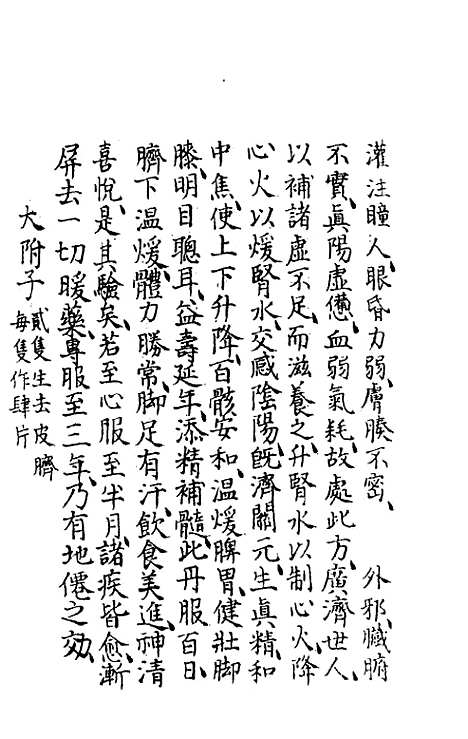 灌注瞳人、眼昏力弱、膚腠不密、外邪、臟腑
不實、眞陽虛憊、血弱氣耗、故處此方、廣濟世人、
以補諸虛不足、而滋養之、升腎水以制心火、降
心火以煖腎水、交感陰陽、旣濟關元、生眞精、和
中焦、使上下升降、百骸安和、溫煖脾胃、健壯脚
膝、明目聰耳、益壽延年、添精補髓、此丹服百日、
臍下溫煖、體力勝常、脚足有汗、飮食美進、神清
喜悅、是其驗矣、若至心服至半月、諸疾皆愈、漸
屏去一切暖藥、專服至三年、乃有地僊之効、
大附子 貳隻生去皮臍
每隻作肆片